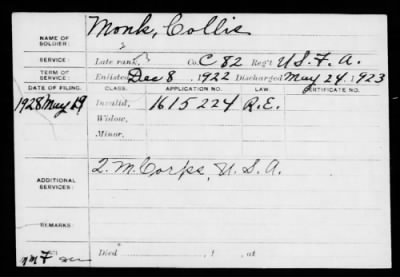 NAME OF SOLDIER: Monk, Collis
SERVICE: Late rank, Co. C 82 Reg't U.S.F.A.
TERM OF SERVICE: Enlisted Dec 8, 1922 Discharged May 24, 1923
DATE OF FILING. CLASS. APPLICATION NO. LAW. CERTIFICATE NO.
1928 May 19 Invalid, 1615224 R.E.
Widow,
Minor,
ADDITIONAL SERVICES: Q.M. Corps, U.S.A.
REMARKS:
Died , 1 , at